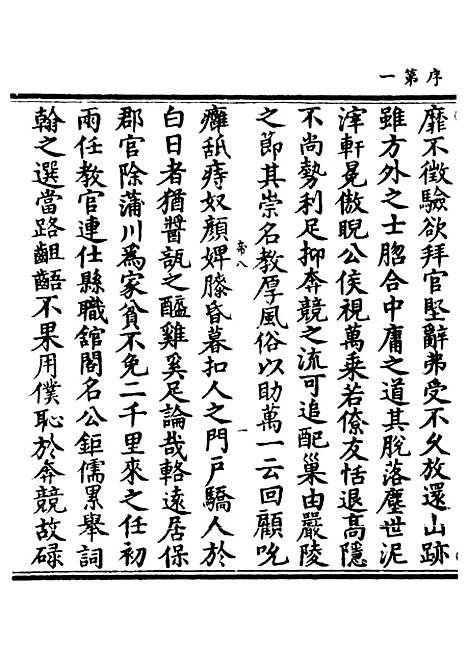 序第一
靡不徵驗欲拜官堅辭弗受不久放還山跡
雖方外之士脗合中庸之道其脫落塵世泥
滓軒冕傲睨公侯視萬乘若僚友恬退高隱
不尚勢利足抑奔競之流可追配巢由嚴陵
之節其崇名教厚風俗以助萬一云回顧吮
帝八
一
癰舐痔奴顏婢膝昏暮扣人之門戶驕人於
白日者猶醬瓿之醯雞奚足論哉輅遠居保
郡官除蒲川爲家貧不免二千里來之任初
兩任教官連仕縣職舘閣名公鉅儒累舉詞
翰之選當路齟齬不果用僕恥於奔競故碌